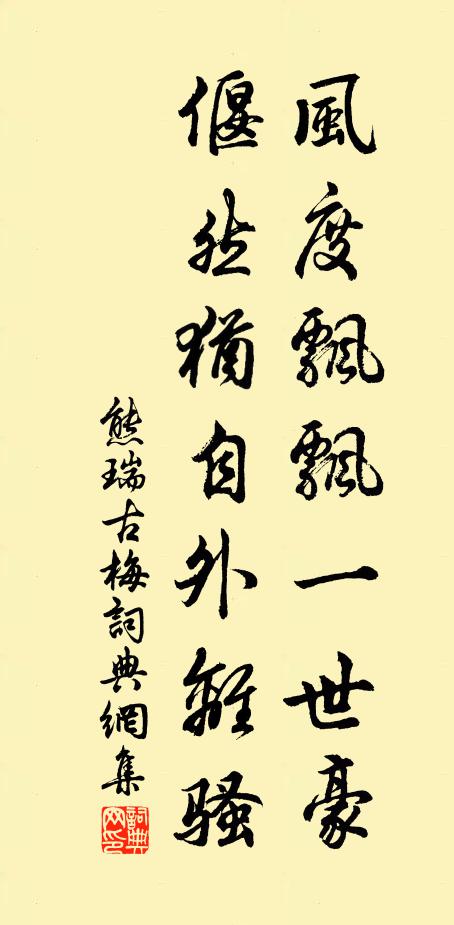 風度飄飄一世豪
偃然猶自外離騷
熊瑞古梅詞典網集
詞典網印